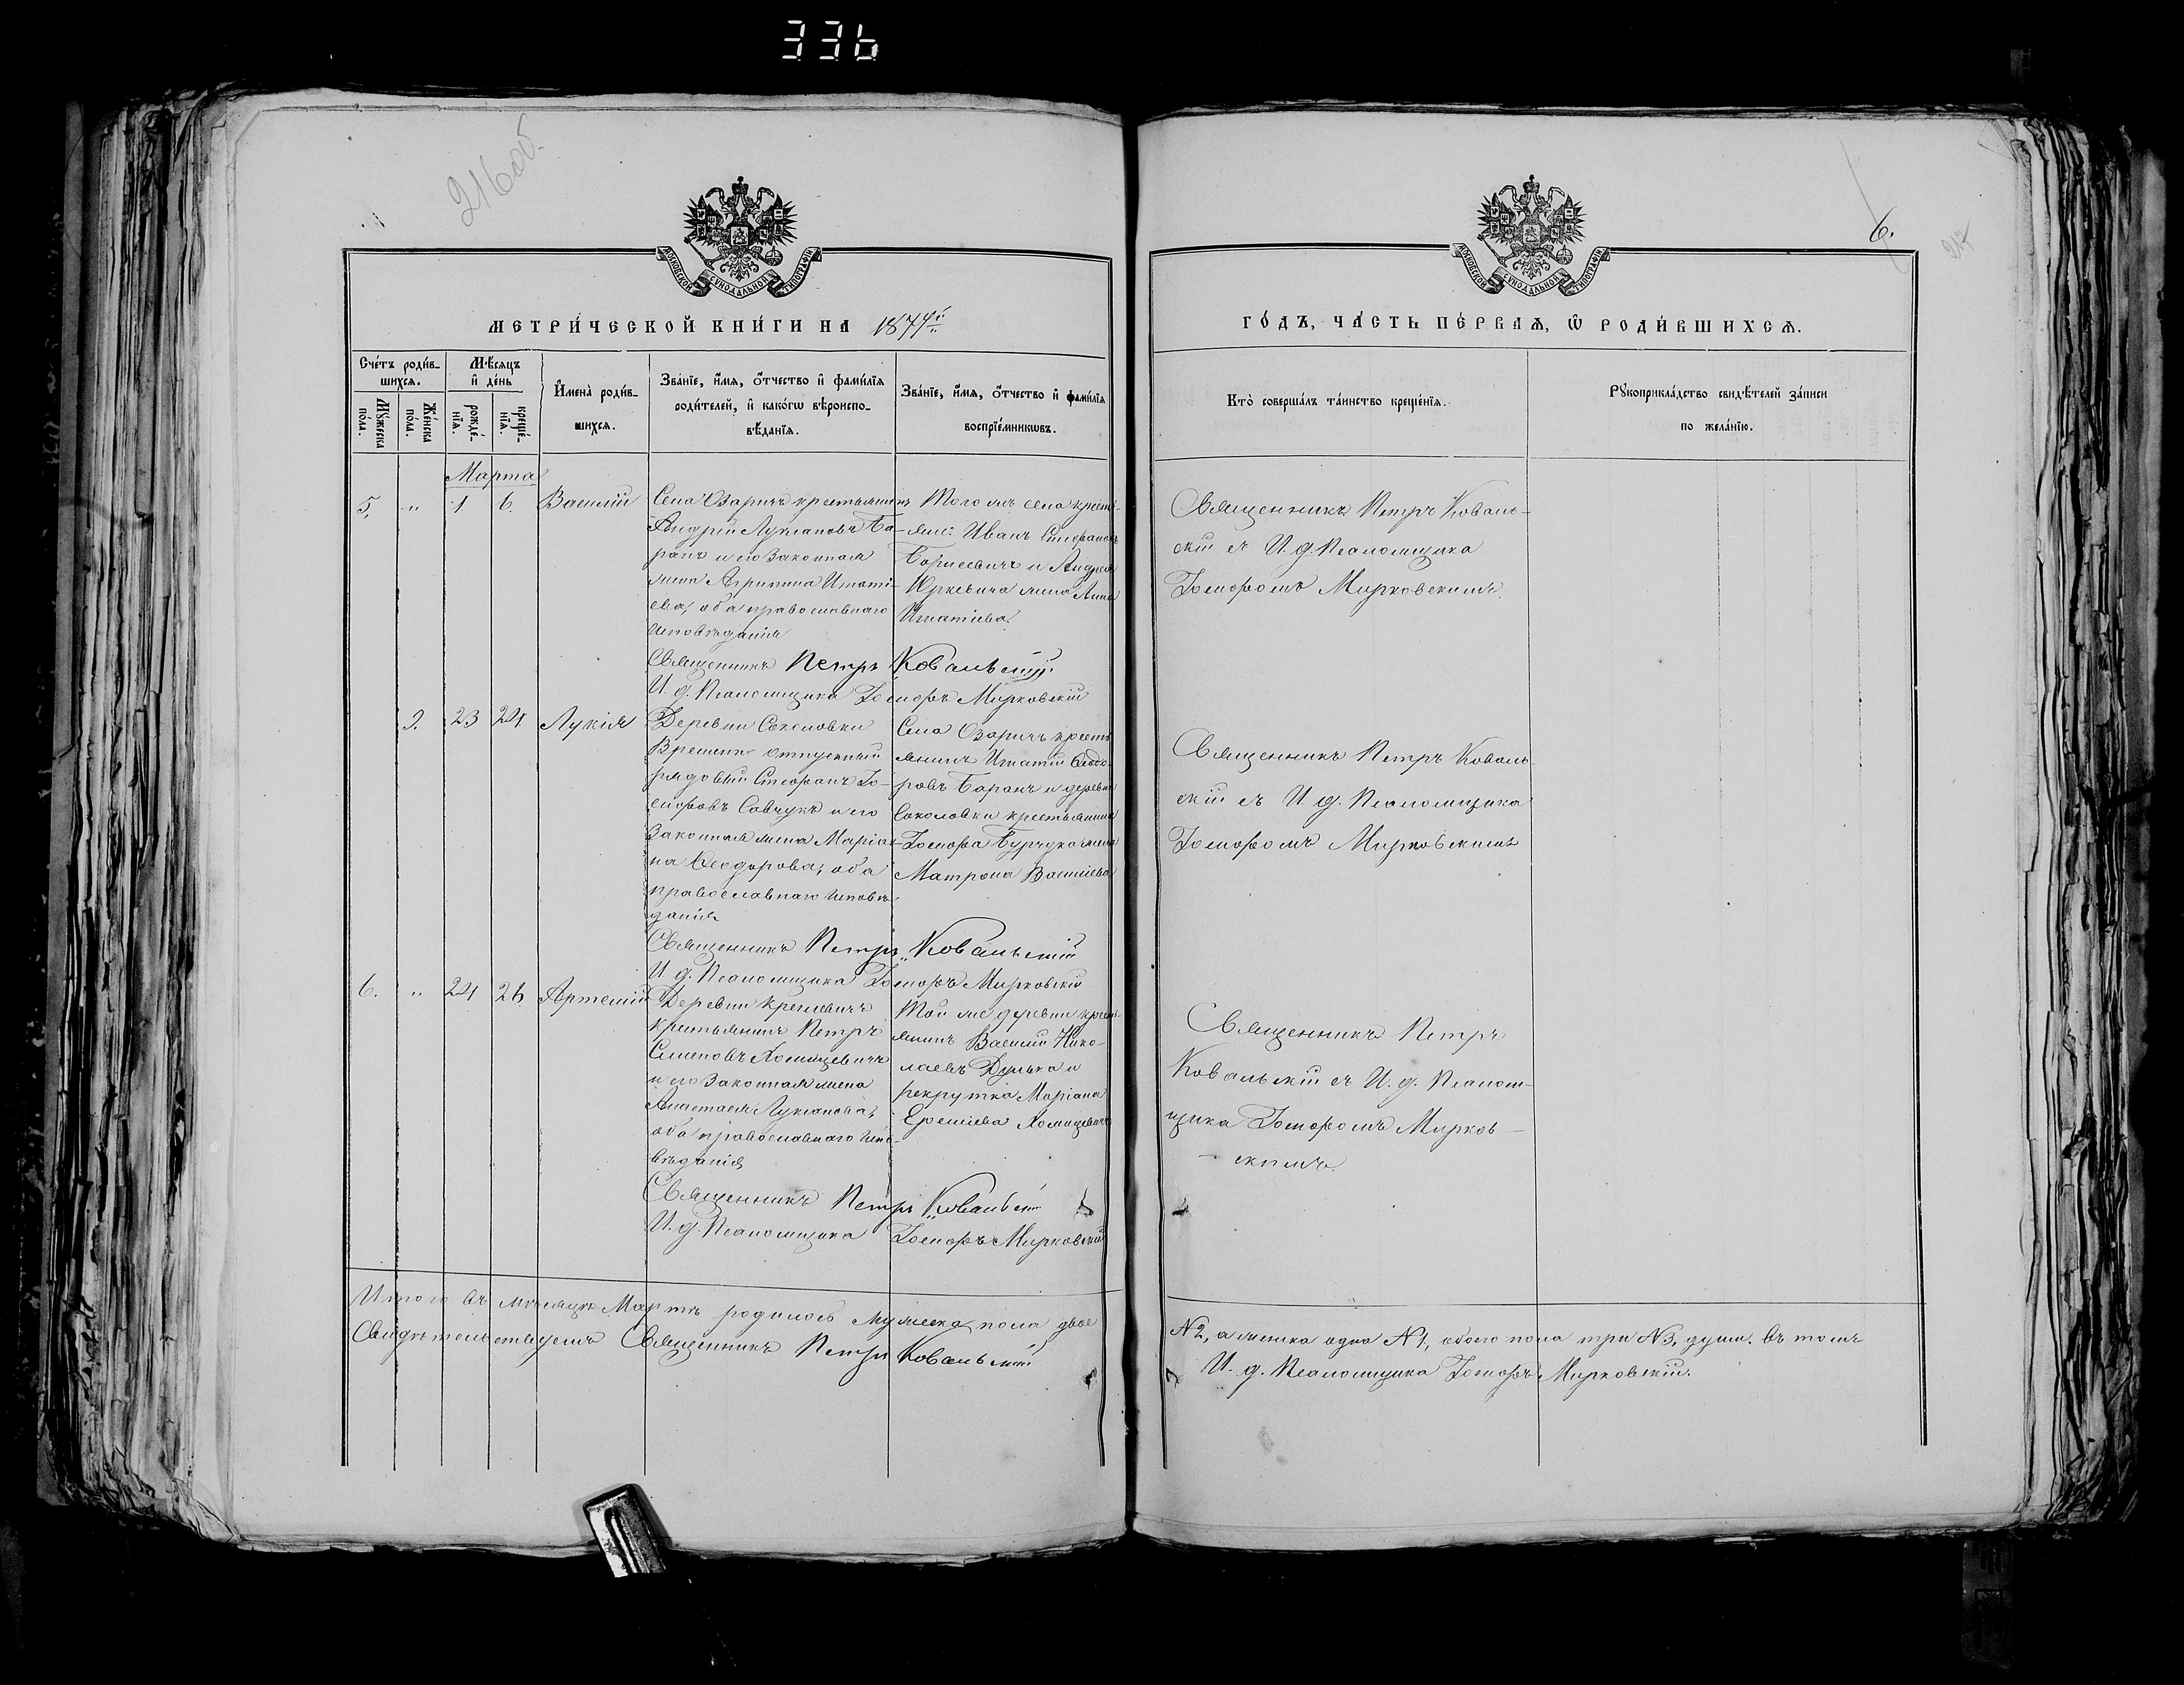 336
216об.
6.
217
МОСКОВСКОЙ СѴНОДАЛЬНОЙ ТИПОГРАФІИ
МОСКОВСКОЙ СѴНОДАЛЬНОЙ ТИПОГРАФІИ
МЕТРИ́ЧЕСКОЙ КНИ́ГИ НА 1874й
ГО́ДЪ, ЧА́СТЬ ПЕ́РВАѦ, Ѽ РОДИ́ВШИХСѦ.
Сче́тъ роди́в-
шихсѧ.
Мꙋ́жеска по́ла.
Же́нска по́ла.
Мѣ́сѧцъ
и҆ де́нь
рожде́-нїѧ.
креще́-нїѧ.
И҆мена̀ роди́в-
шихсѧ.
Зва́нїе, и҆́мѧ, ѻ҆́тчество и҆ фами́лїѧ
роди́телей, и҆ како́гѡ вѣроиспо-
вѣ́данїѧ.
Зва́нїе, и҆́мѧ, ѻ҆́тчество и҆ фами́лїѧ
воспрїе́мникѡвъ.
Кто̀ соверша́лъ та́инство креще́нїѧ.
Рꙋкоприкла́дство свидѣ́телей за́писи
по жела́нїю.
Марта
5. " 1 6. Василій
Села Озаричъ крестьянинъ
Андрей Лукіановъ Ба-
ранъ и его законная
жена Агрипина Игнаті-
ева, оба православнаго
исповѣданія
Того же села кресть-
янс: Иванъ Стефановъ
Борисевичъ и Андрея
Юркевича жена Анна
Игнатіева.
Священникъ Петръ Коваль-
скій съ И. д. Псаломщика
Іосифомъ Мирковскимъ.
Священникъ Петръ Ковальскій
И. д. Псаломщика Іосифъ Мирковскій
2. 23 24 Лукія
Деревни Соколовки
Временно отпускный
рядовый Стефанъ Іо-
сифовъ Савчукъ и его
законная жена Маріан-
на Ѳеодорова, оба
православнаго исповѣ-
данія
Села Озаричъ кресть-
янинъ Игнатій Ѳедо-
ровъ Баранъ и деревни
Соколовки крестьянина
Іосифа жена
Матрона Василіева
Священникъ Петръ Коваль
скій съ И. д. Псаломщика
Іосифомъ Мирковскимъ
Священникъ Петръ Ковальскій
И. д. Псаломщика Іосифъ Мирковскій
6. " 24 26 Артемій
Деревни Кремевичъ
крестьянинъ Петръ
Семеновъ Хомицевичъ
и его законная жена
Анастасія Лукіанова,
оба православнаго испо-
вѣданія
Той же деревни кресть-
янинъ Василій Нико-
лаевъ Дулька и
рекрутка Маріана
Еремѣева Хомицевичъ
Священникъ Петръ
Ковальскій съ И. д. Псалом-
щика Іосифомъ Мирков-
скимъ.
Священникъ Петръ Ковальскій
И. д. Псаломщика Іосифъ Мирковскій
Итого въ мѣсяцѣ Мартѣ родилось мужеска пола двое
N2, а женска одна N1, обоего пола три N3, души. Въ томъ
Свидѣтельствуемъ Священникъ Петръ Ковальскій
И. д. Псаломщика Іосифъ Мирковскій.